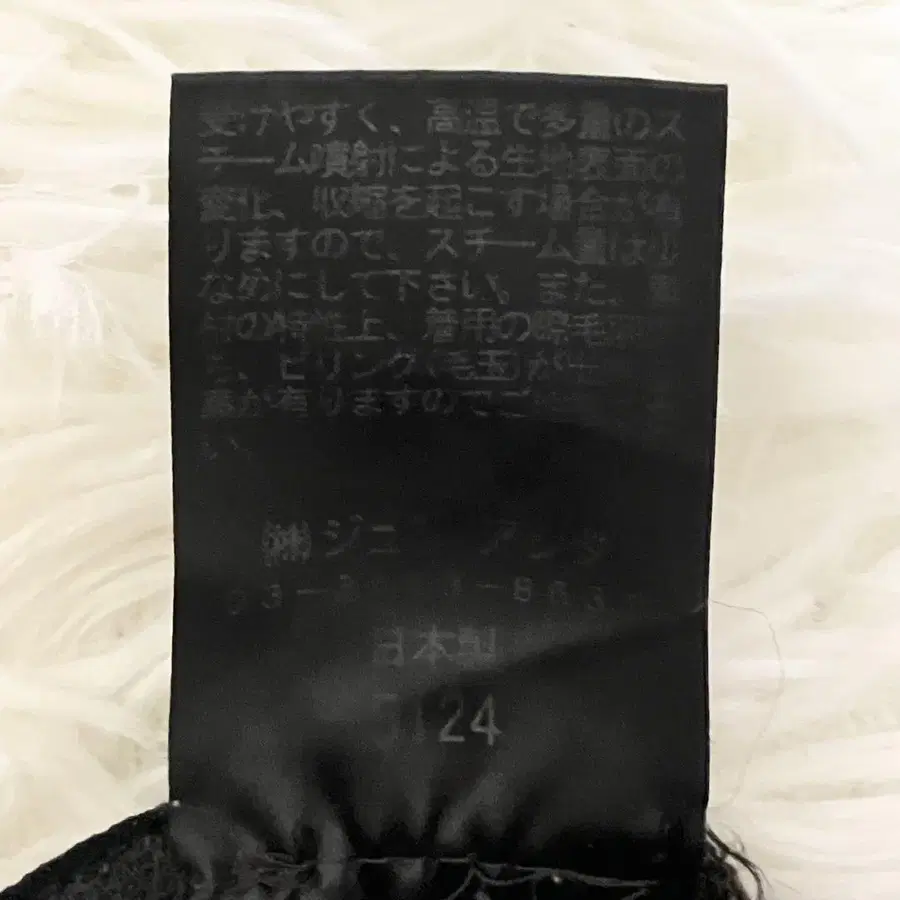 受けやすく、高温で多量のス
チーム噴射による生地表面の
変化、収縮を起こす場合が有
りますので、スチーム量は少
なめにして下さい。また、素
材の特性上、着用の際毛
、ピリング(毛玉)が
が有りますのでご
い。
㈱ジ
日本製
24